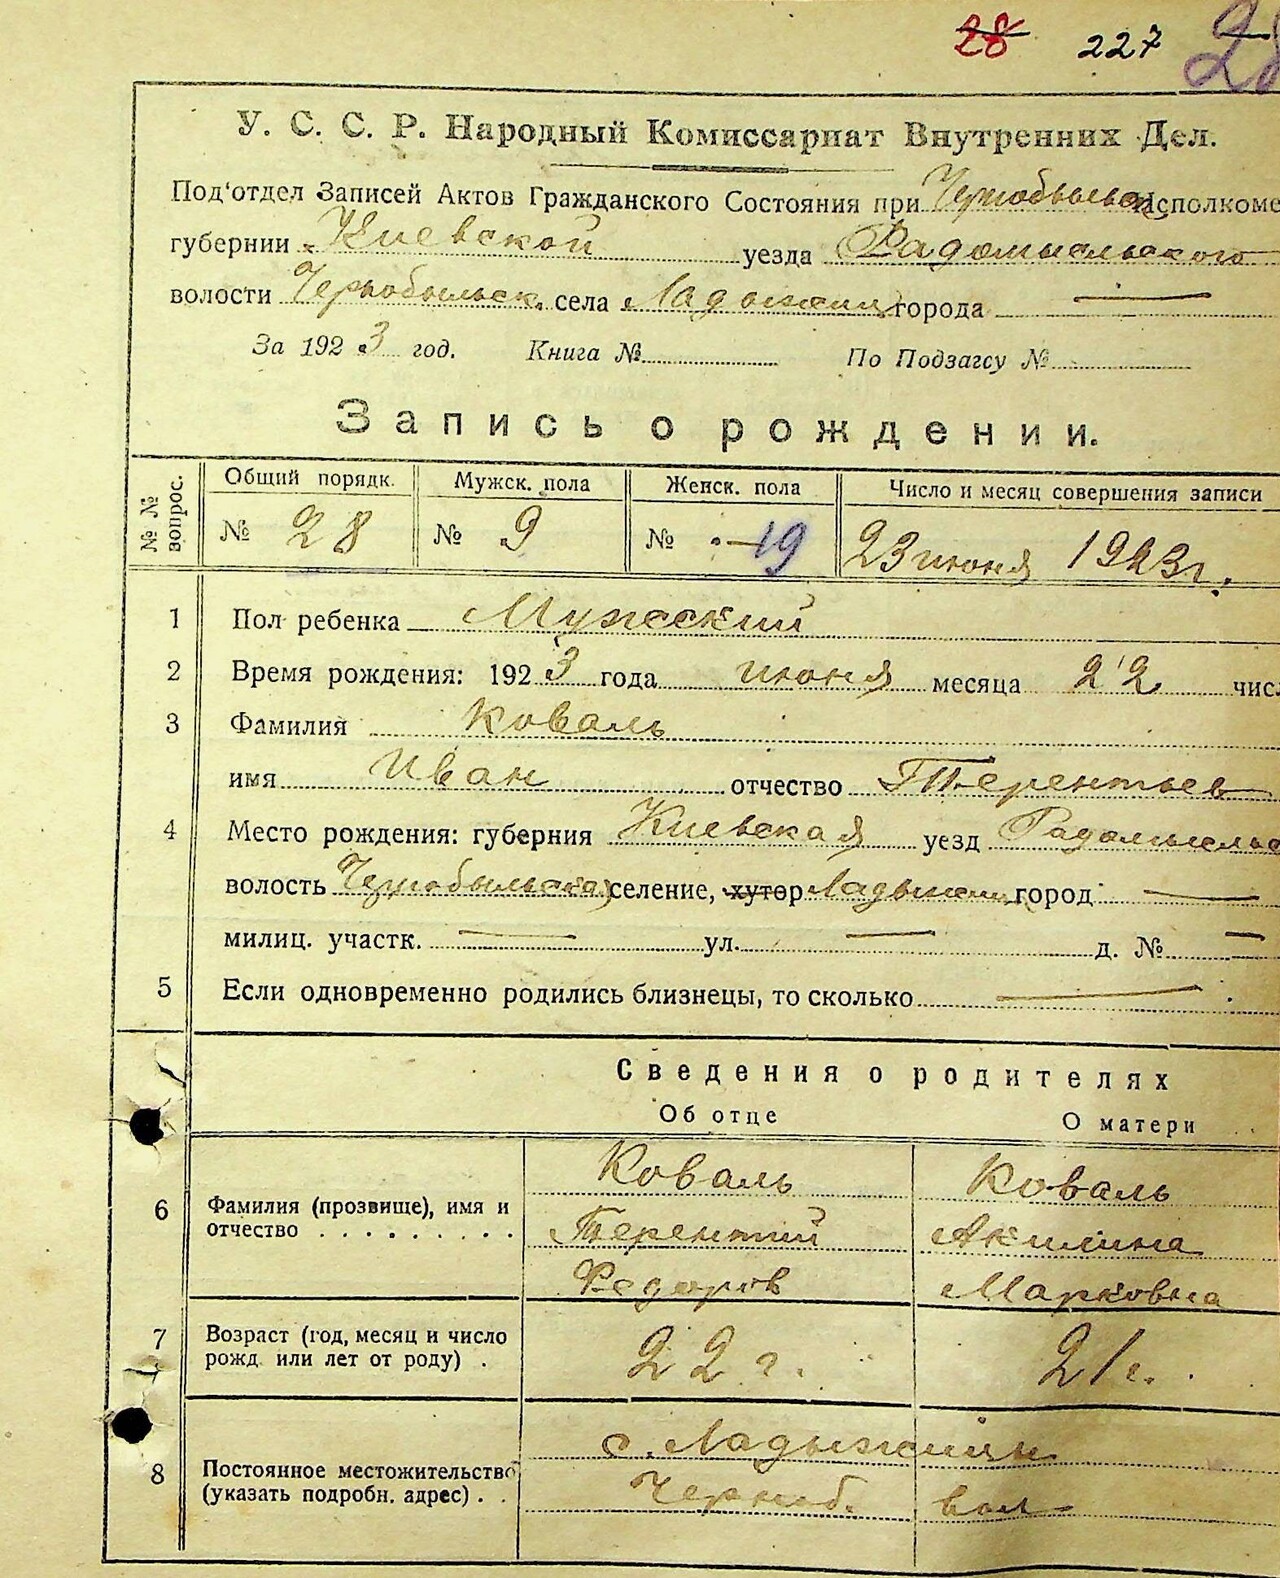 28 227 28
У. С. С. Р. Народный Комиссариат Внутренних Дел.
Под'отдел Записей Актов Гражданского Состояния при Чернобыльск Исполкоме
губернии Киевской уезда Радомысльского
волости Чернобыльск. села Ладыжичи города —
За 1923 год. Книга № По Подзагсу №
Запись о рождении.
№ № вопрос. Общий порядк. Мужск. пола Женск. пола Число и месяц совершения записи
№ 28 № 9 № — 19 23 июня 1923 г.
1 Пол ребенка Мужский
2 Время рождения: 1923 года июня месяца 22 числ
3 Фамилия Коваль
имя Иван отчество Терентьев
4 Место рождения: губерния Киевская уезд Радомысльс
волость Чернобыльская селение, хутор Ладыжичи город —
милиц. участк. — ул. — д. № —
5 Если одновременно родились близнецы, то сколько —
Сведения о родителях
Об отце О матери
Коваль Коваль
6 Фамилия (прозвище), имя и отчество . . . . . . . . . Терентий Акилина
Федоров Марковна
7 Возраст (год, месяц и число рожд. или лет от роду) . 22 г. 21 г.
с. Ладыжичи
8 Постоянное местожительство (указать подробн. адрес) . . Черноб. вол